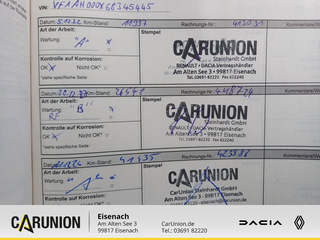 VIN: VF1AH000X68345445
Datum: 5.12.22 Km-Stand: 11997 Rechnungs-Nr.: Kommentare/We
Art der Arbeit: Stempel
Wartung "A" x
CARUNION
Steinhardt GmbH
RENAULT • DACIA Vertragshändler
Am Alten See 3 • 99817 Eisenach
Kontrolle auf Korrosion:
OK x Nicht OK*
*siehe spezifische Seite
Datum: Km-Stand: 26541 Rechnungs-Nr.: 418724 Kommentare/W
Art der Arbeit: Stempel
Wartung "B" x
CARUNION
Steinhardt GmbH
RENAULT • DACIA Vertragshändler
Am Alten See 3 • 99817 Eisenach
Kontrolle auf Korrosion:
OK x Nicht OK*
*siehe spezifische Seite
Km-Stand: 41535 Rechnungs-Nr. Kommentare/W
Art der Arbeit: Stempel
Wartung
CARUNION
CarUnion Steinhardt GmbH
Am Alten See 3
99817 Eisenach
Tel. 03691 82220
Kontrolle auf Korrosion:
OK Nicht OK*
CARUNION
Eisenach
Am Alten See 3
99817 Eisenach
CarUnion.de
Tel.: 03691 82220
DACIA